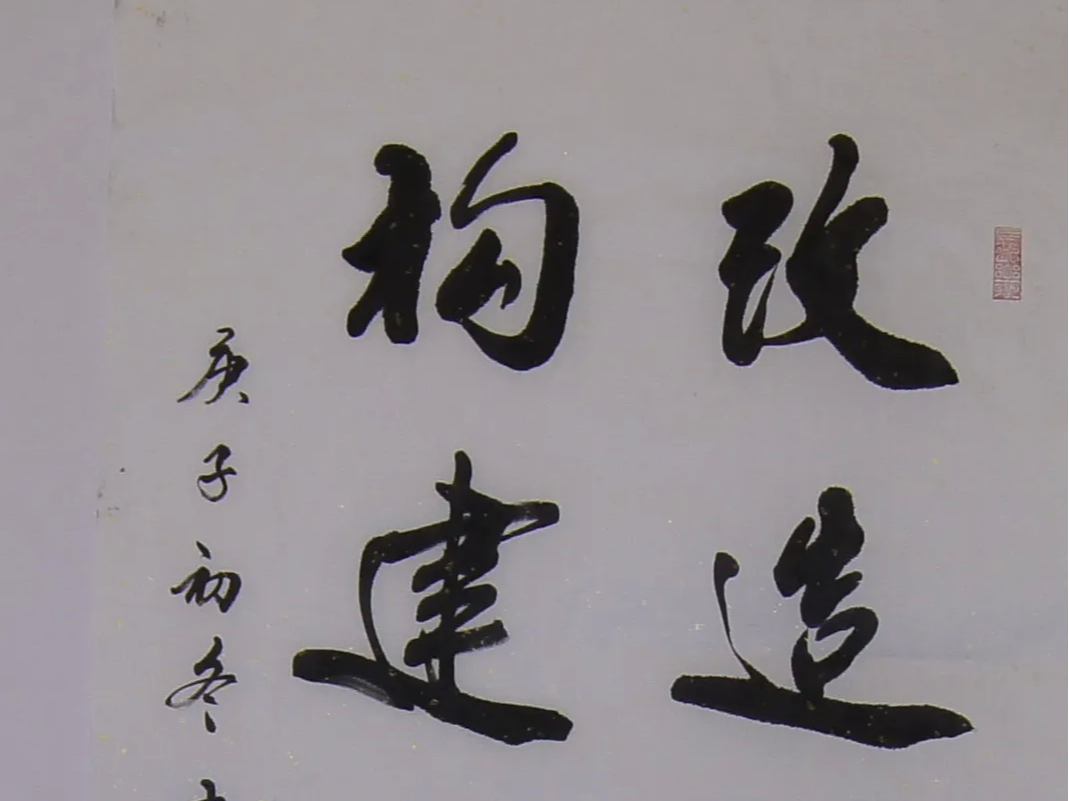 改造
构建
庚子初冬